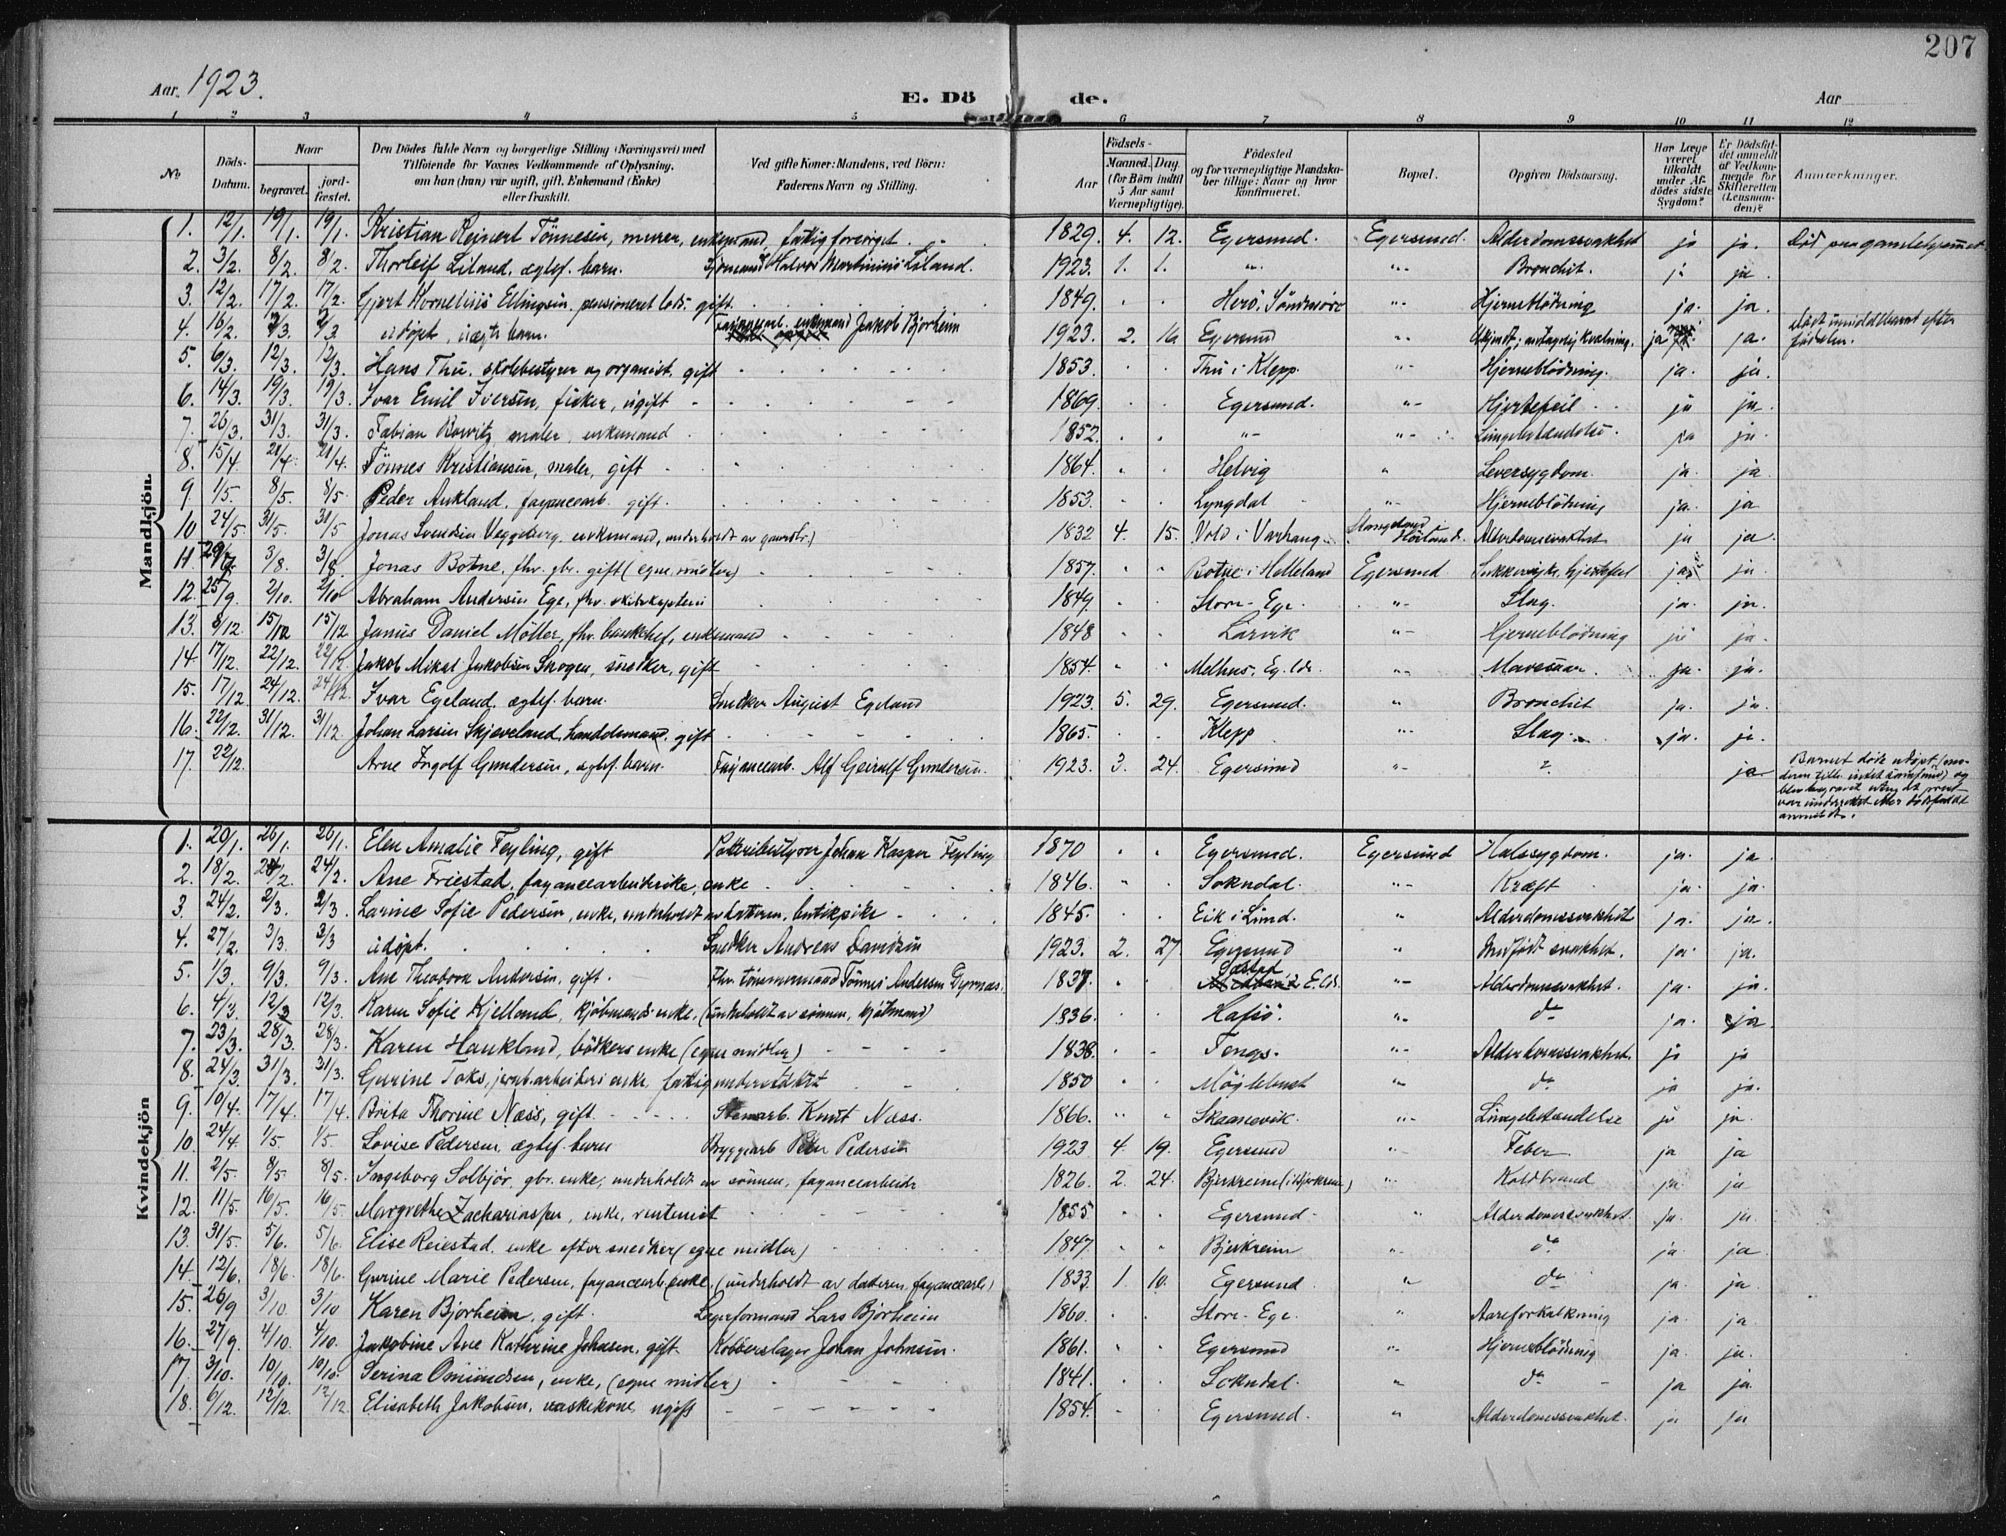 207
Aar 1923.
E. Dö de.
Aar
1 2 3 4 5 6 7 8 9 10 11 12
No
Döds-Datum.
Naar
begravet.
jord-fæstet.
Den Dödes fulde Navn og borgerlige Stilling (Næringsvei) med
Tilföiende for Voxnes Vedkommende af Oplysning,
om han (hun) var ugift, gift, Enkemand (Enke)
eller fraskilt.
Ved gifte Koner: Mandens, ved Börn:
Faderens Navn og Stilling.
Födsels-
Aar
Maaned. Dag.
(for Börn indtil
5 Aar samt
Værnepligtige).
Födested
og for værnepligtige Mandska-
ber tillige: Naar og hvor
konfirmeret.
Bopæl.
Opgiven Dödsaarsag.
Har Læge
været
tilkaldt
under Af-
dödes sidste
Sygdom?
Er Dödsfal-
det anmeldt
af Vedkom-
mende for
Skifteretten
(Lensman-
den)?
Anmærkninger.
Mandkjön.
1. 12/1. 19/1. 19/1. Kristian Reinert Tönnesen, murer, enkemand, fattigforsörget 1829. 4. 12. Egersund. Egersund. Alderdomssvakhet ja ja. Död paa gamlehjemmet
2. 3/2. 8/2. 8/2. Thorleif Liland, ægtef. barn. Sjömand Halvor Martinius Liland. 1923. 1. 1. " " Bronchit. ja ja
3. 12/2. 17/2. 17/2. Gjert Kornelius Ellingsen, pensioneret lods, gift. 1849. Herö, Söndmöre " Hjerneblödning ja. ja.
4. 16/2. 2/3. 2/3 udöpt, uægte barn. Fayancearb. enkemand Jakob Bjorheim 1923. 2. 16 Egersund " Ukjendt; antagelig kvælning. ja ja. Död umiddelbart efter födselen.
5. 6/3. 12/3. 12/3. Hans Thu, skolebestyrer og organist, gift 1853. Thu i Klepp. " Hjerneblödning. ja. ja.
6. 14/3. 19/3. 19/3. Ivar Emil Iversen, fisker, ugift 1869. Egersund. " Hjertefeil ja ja.
7. 26/3. 31/3. 31/3. Fabian Rowitz, maler, enkemand 1852. " " Lungebetændelse. ja ja
8. 15/4. 21/4. 21/4. Tönnes Kristiansen, maler, gift 1864. Helvig " Leversygdom. ja. ja
9. 1/5. 8/5. 8/5. Peder Aukland, fayancearb. gift. 1853. Lyngdal " Hjerneblödning ja. ja
10. 24/5. 31/5. 31/5 Jonas Svendsen Veggeberg, enkemand, underholdt av gaardbr.) 1832 4. 15. Vold i Varhaug. Stangeland i Höiland. Alderdomssvakhet ja ja
11. 29/7. 3/8. 3/8. Jonas Botne, fhv. gbr. gift (egne midler) 1857. Botne i Helleland Egersund Sukkersyke, hjertefeil ja ja
12. 25/9. 2/10. 2/10 Abraham Andersen Ege, fhv. skibskaptein 1849. Store-Ege. " Slag. ja. ja.
13. 8/12. 15/12 15/12. Janus Daniel Möller, fhv. bankchef, enkemand 1848 Larvik " Hjerneblödning ja ja.
14. 17/12. 22/12. 22/12 Jakob Mikal Jakobsen Skogen, snedker, gift 1854. Melhus, Eg. lds. " Mavesaar ja. ja.
15. 17/12. 24/12. 24/12. Ivar Egeland, ægtef. barn. Snedker August Egeland 1923. 5. 29. Egersund. " Bronchit ja. ja.
16. 22/12. 31/12. 31/12. Johan Larsen Skjeveland, handelsmand, gift 1865. Klepp " Slag. ja. ja.
17. 22/12. Arne Ingolf Gundersen, ægtef. barn. Fayancearb. Alf Geirulf Gundersen. 1923. 3. 24. Egersund " ? ja Barnet döde udöpt (moderen tilh. intet samfund) og blev begravet uten at prest var underrettet eller dödsfaldet anmeldt.
Kvindekjön
1. 20/1. 26/1. 26/1. Elen Amalie Feyling, gift Potteribestyrer Johan Kasper Feyling 1870 Egersund. Egersund Halssygdom. ja. ja
2. 18/2. 24/2 24/2. Ane Friestad, fayancearbeiderske, enke 1846. Sokndal. " Kræft ja. ja.
3. 24/2. 2/3. 2/3. Larine Sofie Pedersen, enke, underholdt av datteren, butikpike 1845. Eik i Lund. " Alderdomssvakhet ja. ja.
4. 27/2. 3/3. 3/3 udöpt. Snedker Andreas Davidsen 1923. 2. 27. Egersund " Medfödt svakhet. ja. ja.
5. 1/3. 9/3. 9/3. Ane Theodora Andersen, gift. Fhv. tömmermand Tönnes Andersen Dyrnæs. 1837. Sæstad E. lds. " Alderdomssvakhet. ja. ja.
6. 4/3. 12/3 12/3. Karen Sofie Kjelland, kjöbmands enke, (underholdt av sönnen, kjöbmand) 1836. Hafsö. " do ja. ja
7. 23/3. 28/3. 28/3. Karen Haukland, bödkers enke (egne midler) 1838. Tengs. " Alderdomssvakhet. ja ja
8. 24/3. 31/3. 31/3. Gurine Toks, jernb.arbeiders enke, fattigunderstöttet 1850 Möglebust " do ja ja.
9. 10/4. 17/4. 17/4. Brita Thorine Næss, gift. Stenarb. Knut Næss. 1866. Skaanevik. " Lungebetændelse ja ja.
10. 24/4. 1/5. 1/5. Lovise Pedersen, ægtef. barn Bryggearb Peter Pedersen 1923 4. 19. Egersund " Feber ja ja
11. 2/5. 8/5. 8/5. Ingeborg Solbjör, gbr. enke, underholdt av sönnen, fayancearbeider 1826. 2. 24. Bjerkreim (i Bjerkreim) " Koldbrand ja. ja
12. 11/5. 16/5. 16/5. Margrethe Zachariassen, enke, rentenist 1855. Egersund. " Alderdomssvakhet. ja. ja.
13. 31/5. 5/6. 5/6. Elise Reiestad, enke efter snedker (egne midler) 1847. Bjerkreim " do ja. ja
14. 12/6. 18/6. 18/6. Gurine Marie Pedersen, fayancearb. enke, (underholdt av datteren, fayancearb.) 1833. 1. 10. Egersund " do ja ja.
15. 26/9 3/10. 3/10 Karen Bjorheim, gift. Lagerformand Lars Bjorheim 1860. Store-Ege. " Aareforkalkning ja ja.
16. 27/9. 4/10. 4/10. Jakobine Ane Kathrine Johnsen, gift. Kobberslager Johan Johnsen. 1861. Egersund " Hjerneblödning ja. ja.
17. 3/10. 10/10. 10/10. Serina Omundsen, enke, (egne midler) 1841. Sokndal. " do ja ja.
18. 6/12. 12/12. 12/12 Elisabeth Jakobsen, vaskekone, ugift 1854. Egersund. " Alderdomssvakhet. ja ja